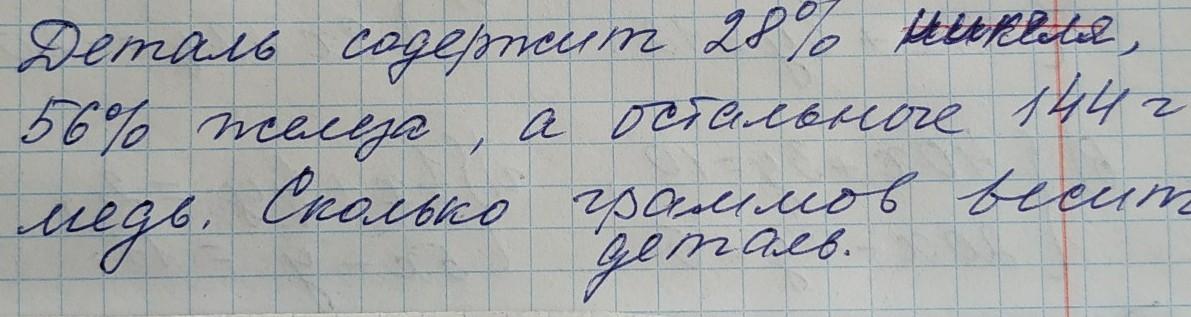 Деталь содержит 28% никеля,
56% железа, а остальное 144 г
медь. Сколько граммов весит
деталь.